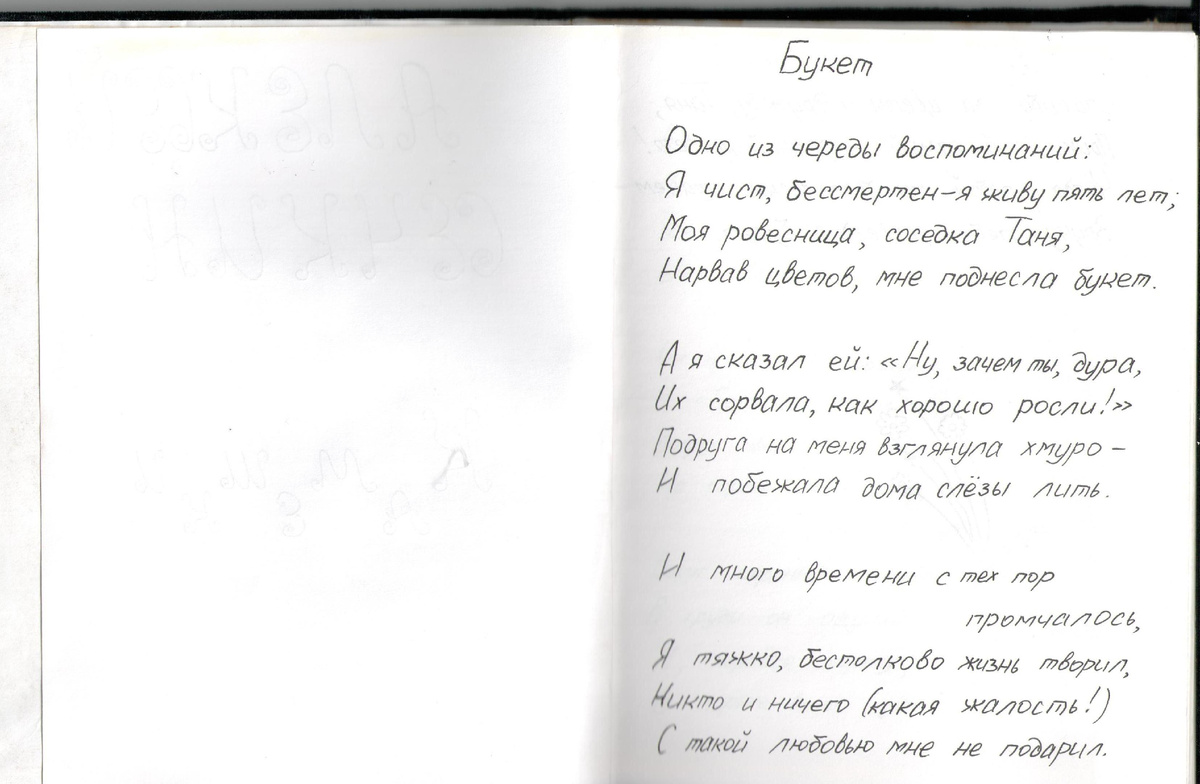 Букет
Одно из череды воспоминаний:
Я чист, бессмертен-я живу пять лет;
Моя ровесница, соседка Таня,
Нарвав цветов, мне поднесла букет.
А я сказал ей: «Ну, зачем ты, дура,
Их сорвала, как хорошо росли!»
Подруга на меня взглянула хмуро –
И побежала дома слёзы лить.
И много времени с тех пор
промчалось,
Я тяжко, бестолково жизнь творил,
Никто и ничего (какая жалость!)
С такой любовью мне не подарил.